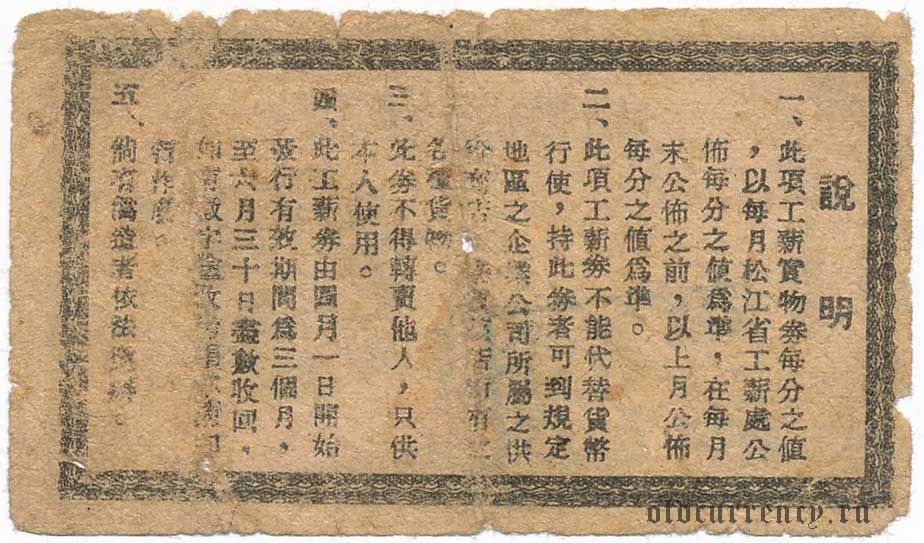 說明
一、此項工薪實物券每分之值
，以每月松江省工薪處公
佈每分之值為準，在每月
末公佈之前，以上月公佈
每分之值為準。
二、此項工薪券不能代替貨幣
行使，持此券者可到規定
地區之企業公司所屬之供
各種貨物。
三、此券不得轉賣他人，只供
本人使用。
四、此工薪券由四月一日開始
發行有效期間為三個月，
至六月三十日盡數收回，
五、倘有偽造者依法
oldcurrency.ru